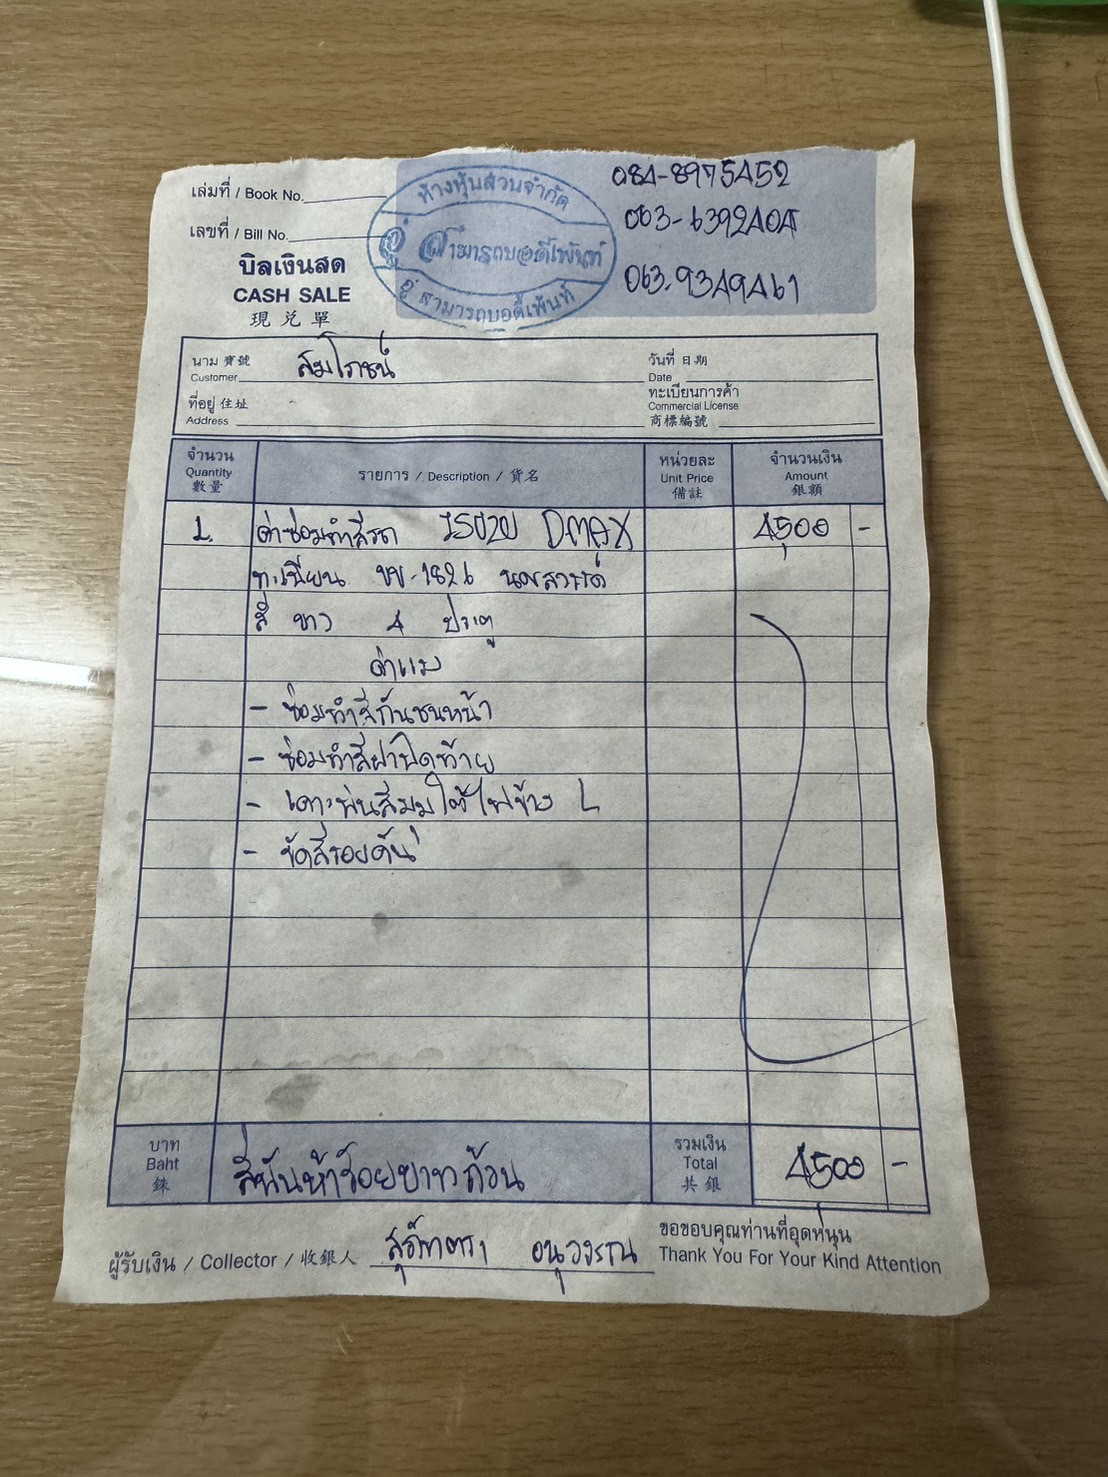 เล่มที่ / Book No.
เลขที่ / Bill No.
บิลเงินสด
CASH SALE
現兌單
ห้างหุ้นส่วนจำกัด
อู่ สามารถบอดี้เพ้นท์
อู่ สามารถบอดี้เพ้นท์
084-8975452
063-6392404
063-9349461
นาม 寶號 สมโภชน์
Customer
วันที่ 日期
Date
ที่อยู่ 住址
Address
ทะเบียนการค้า
Commercial License
商標編號
จำนวน
Quantity
數量
รายการ / Description / 貨名
หน่วยละ
Unit Price
備註
จำนวนเงิน
Amount
銀額
1. ค่าซ่อมทำสีรถ ISUZU DMAX 4,500 -
ทะเบียน ขข-1826 นครสวรรค์
สี ขาว 4 ประตู
ค่าแรง
- ซ่อมทำสีกันชนหน้า
- ซ่อมทำสีฝาปิดท้าย
- เคาะพ่นสีมุมใต้ไฟท้าย L
- ขัดสีรอบคัน
บาท
Baht
銖
สี่พันห้าร้อยบาทถ้วน
รวมเงิน
Total
共銀
4,500 -
ผู้รับเงิน / Collector / 收銀人 สุจิทตรา อนุวรรณ
ขอขอบคุณท่านที่อุดหนุน
Thank You For Your Kind Attention